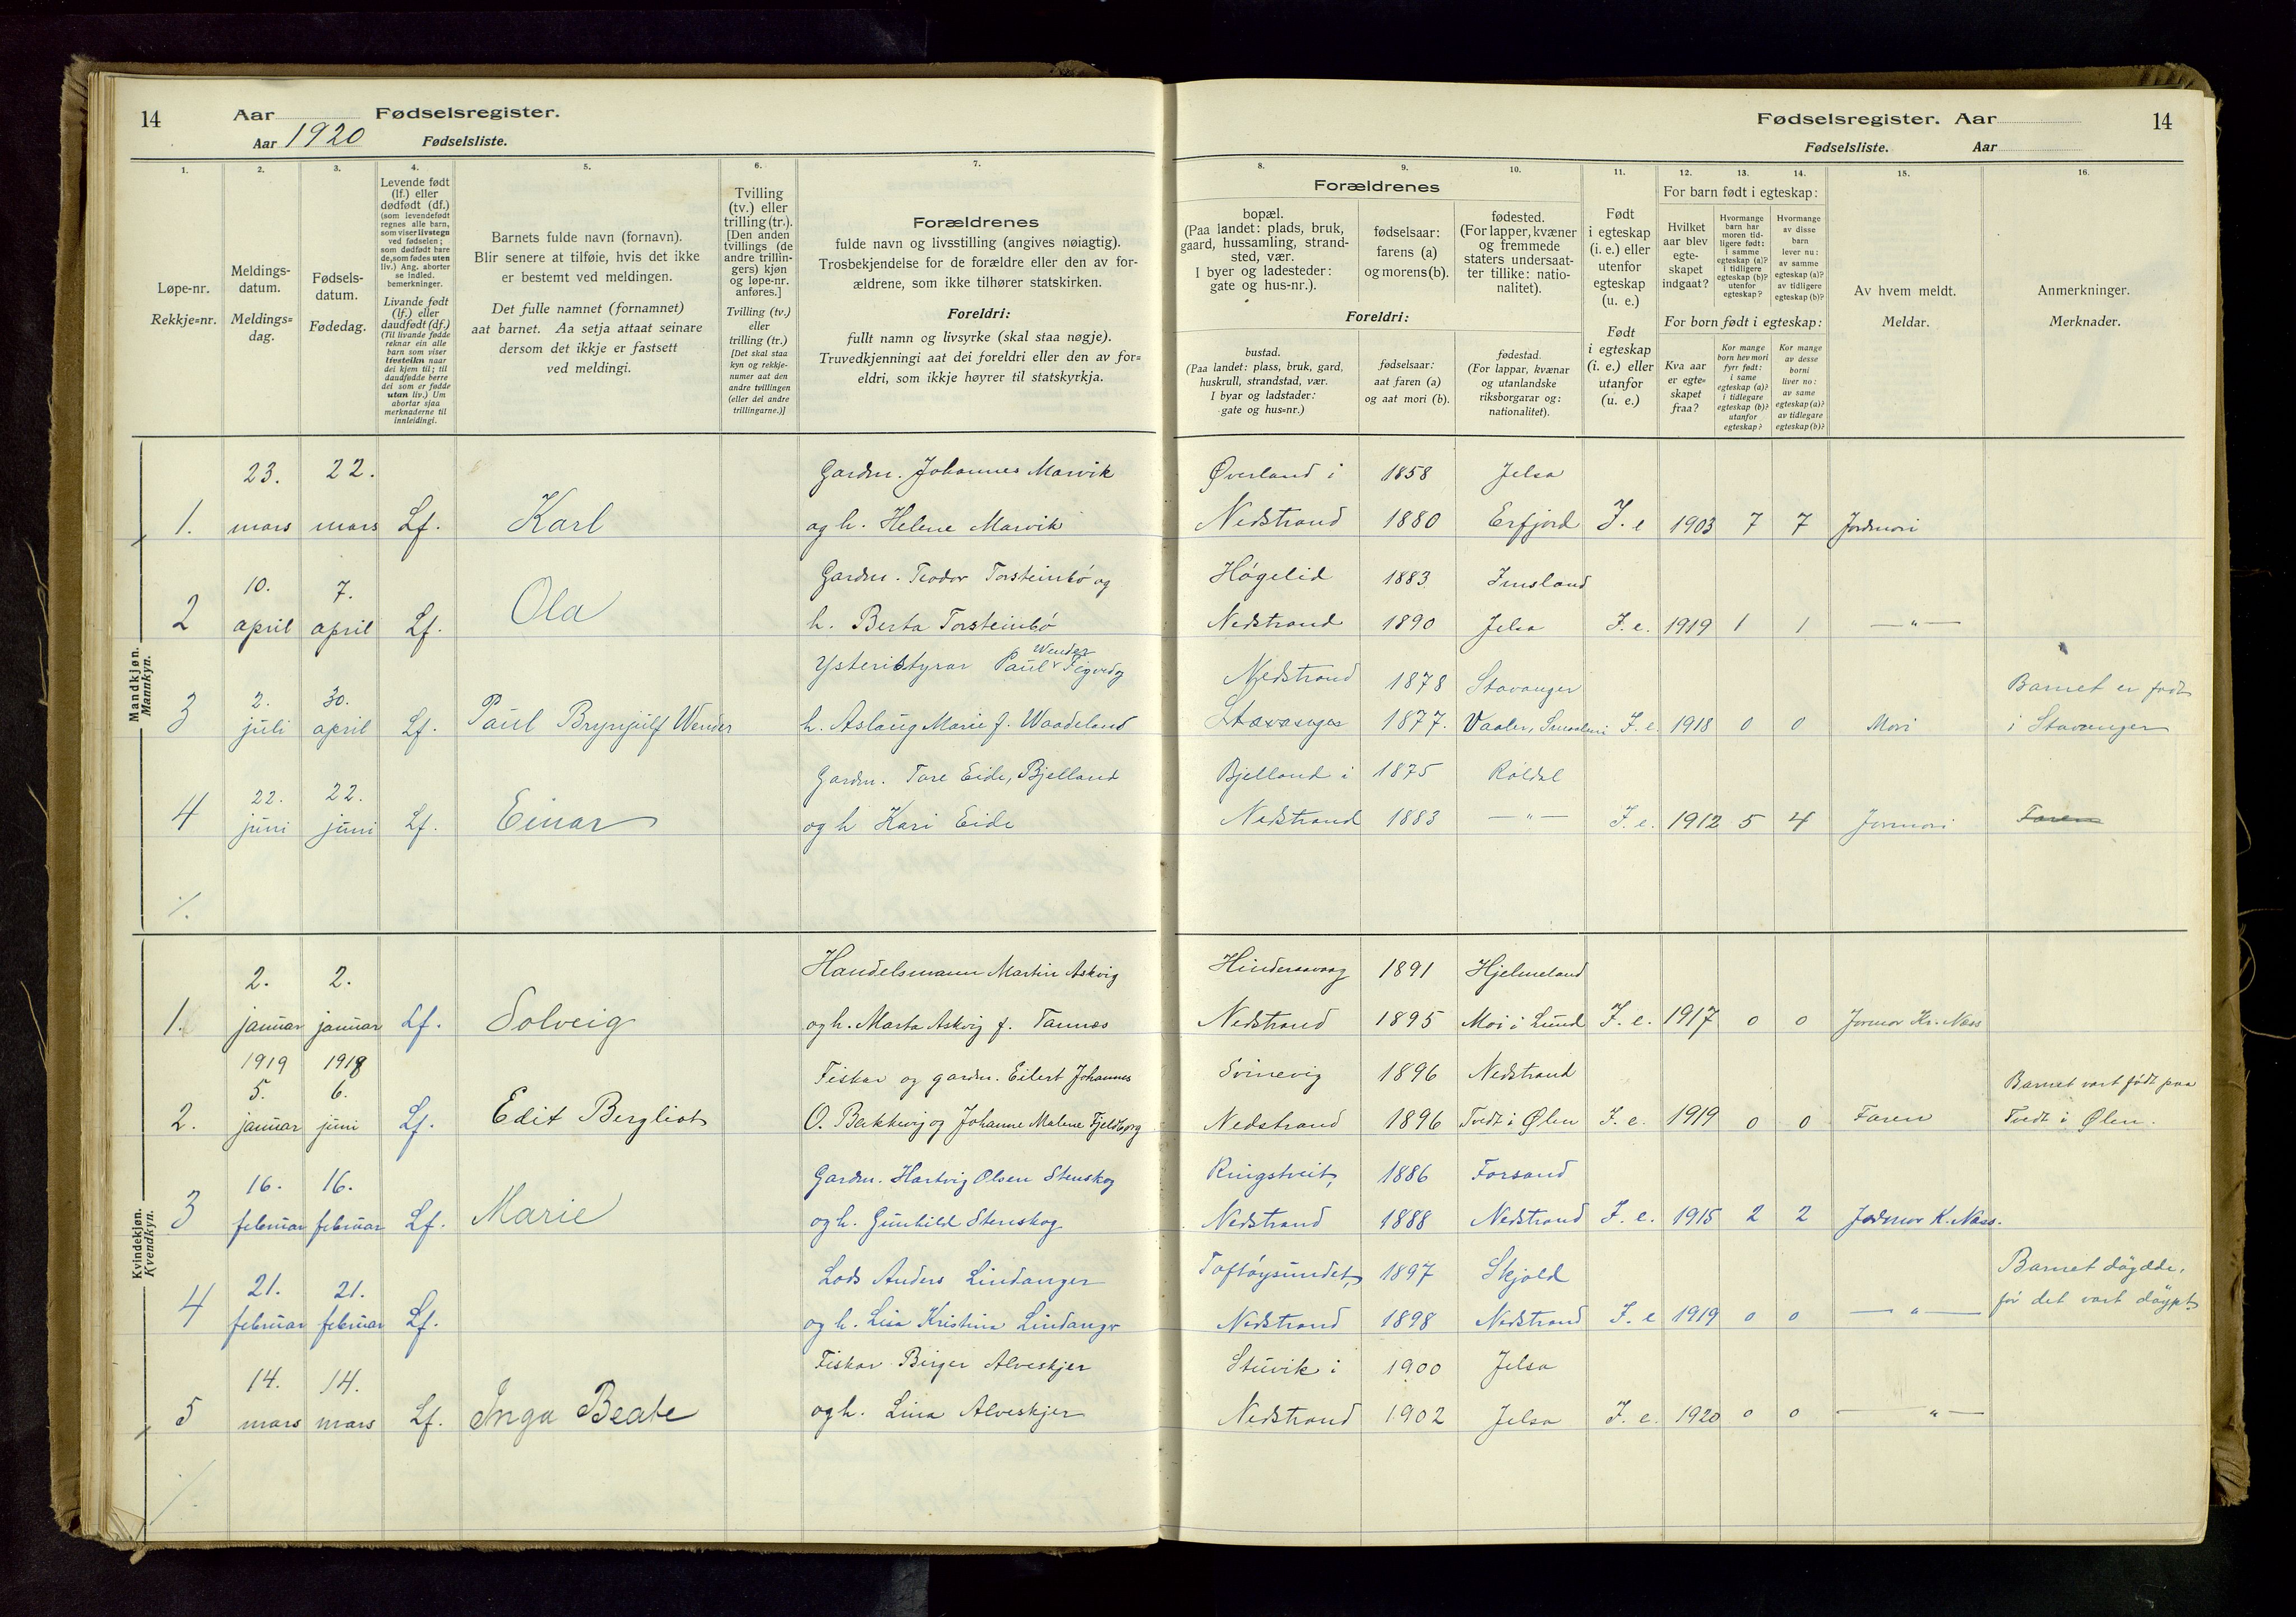 14
Aar Fødselsregister.
Aar 1920 Fødselsliste.
Fødselsregister. Aar
14
Fødselsliste. Aar
1.
Løpe-nr.
Rekkje=nr.
2.
Meldings-
datum.
Meldings=
dag.
3.
Fødsels-
datum.
Fødedag.
4.
Levende født
(lf.) eller
dødfødt (df.)
(som levendefødt
regnes alle barn,
som viser livstegn
ved fødselen;
som dødfødt bare
de, som fødes uten
liv.) Ang. aborter
se indled.
bemerkninger.
Livande født
(lf.) eller
daudfødt (df.)
(Til livande fødde
reknar ein alle
barn som viser
livsteikn naar
dei kjem til; til
daudfødde berre
dei som er fødde
utan liv.) Um
abortar sjaa
merknaderne til
innleidingi.
5.
Barnets fulde navn (fornavn).
Blir senere at tilføie, hvis det ikke
er bestemt ved meldingen.
Det fulle namnet (fornamnet)
aat barnet. Aa setja attaat seinare
dersom det ikkje er fastsett
ved meldingi.
6.
Tvilling
(tv.) eller
trilling (tr.).
[Den anden
tvillings (de
andre trillin-
gers) kjøn
og løpe-nr.
anføres.]
Tvilling (tv.)
eller
trilling (tr.)
[Det skal staa
kyn og rekkje-
numer aat den
andre tvillingen
(eller dei andre
trillingarne.)]
7.
Forældrenes
fulde navn og livsstilling (angives nøiagtig).
Trosbekjendelse for de forældre eller den av for-
ældrene, som ikke tilhører statskirken.
Foreldri:
fullt namn og livsyrke (skal staa nøgje).
Truvedkjenningi aat dei foreldri eller den av for=
eldri, som ikkje høyrer til statskyrkja.
Forældrenes
8.
bopæl.
(Paa landet: plads, bruk,
gaard, hussamling, strand-
sted, vær.
I byer og ladesteder:
gate og hus-nr.).
9.
fødselsaar:
farens (a)
og morens (b).
10.
fødested.
(For lapper, kvæner
og fremmede
staters undersaat-
ter tillike: natio-
nalitet).
Foreldri:
bustad.
(Paa landet: plass, bruk, gard,
huskrull, strandstad, vær.
I byar og ladstader:
gate og hus=nr.)
fødselsaar:
aat faren (a)
og aat mori (b).
fødestad.
(For lappar, kvænar
og utanlandske
riksborgarar og:
nationalitet).
11.
Født
i egteskap
(i. e.) eller
utenfor
egteskap
(u. e.)
Født
i egteskap
(i. e.) eller
utanfor
(u. e.)
For barn født i egteskap:
12.
Hvilket
aar blev
egte-
skapet
indgaat?
13.
Hvormange
barn har
moren tid-
ligere født:
i samme
egteskap (a)?
i tidligere
egteskap (b)?
utenfor
egteskap?
14.
Hvormange
av disse
barn
lever nu:
av samme
egteskap (a)?
av tidligere
egteskap (b)?
For born født i egteskap:
Kva aar
er egte=
skapet
fraa?
Kor mange
born hev mori
fyrr født:
i same
egteskap (a)?
i tidlegare
egteskap (b)?
utanfor
egteskap?
Kor mange
av desse
borni
liver no:
av same
egteskap (a)?
av tidlegare
egteskap (b)?
15.
Av hvem meldt.
Meldar.
16.
Anmerkninger.
Merknader.
Mandkjøn.
Mannkyn.
23. 22. Gardm. Johannes Marvik Øverland i 1858 Jelsa
1. mars mars Lf. Karl og h. Helene Marvik Nedstrand 1880 Erfjord I. e 1903 7 7 Jordmori
10. 7. Gardm. Teodor Torsteinbø og Høgelid 1883 Imsland
2 april april Lf. Ola h. Berta Torsteinbø Nedstrand 1890 Jelsa I. e. 1919 1 1 — " —
2. 30. Ysteristyrar Paul Wender Nedstrand 1878 Stavanger Barnet er født
3 juli april Lf. Paul Brynjulf Wender h. Aslaug Marie f. Waadeland Stavanger 1877. Vaaler, Smaaleni I. e. 1918 0 0 Mori i Stavanger
22. 22. Gardm. Tore Eide, Bjelland Bjelland i 1875 Røldal
4 juni juni Lf. Einar og h Kari Eide Nedstrand 1883 — " — I. e. 1912 5 4 Jormori Faren
Kvindekjøn.
Kvendkyn.
2. 2. Handelsmann Martin Askvig Hinderaavaag 1891 Hjelmeland
1. januar januar Lf. Solveig og h. Marta Askvig f. Tannes Nedstrand 1895 Moi i Lund I. e. 1917 0 0 Jormor Kr. Næss
1919 1918
5. 6. Fiskar og gardm. Eilert Johannes Svinevig 1896 Nedstrand Barnet vart født paa
2. januar juni Lf. Edit Bergliot O. Bakkevig og Johanne Malene Fjeldberg Nedstrand 1896 Tvedt i Ølen I. e. 1919 0 0 Faren Tvedt i Ølen.
16. 16. Gardm. Hartvig Olsen Stenskog Ringstveit, 1886 Forsand
3 februar februar Lf. Marie og h. Gunhild Stenskog Nedstrand 1888 Nedstrand I. e. 1915 2 2 Jordmor K. Næss.
21. 21. Lods Anders Lindanger Toftøysundet, 1897 Skjold Barnet døydde,
4 februar februar Lf. og h. Lisa Kristina Lindanger Nedstrand 1898 Nedstrand I. e 1919 0 0 — " — før det vart døypt
14. 14. Fiskar Birger Alveskjer Stuvik i 1900 Jelsa
5 mars mars Lf. Inga Beate og h. Lina Alveskjer Nedstrand 1902 Jelsa I. e. 1920 0 0 — " —